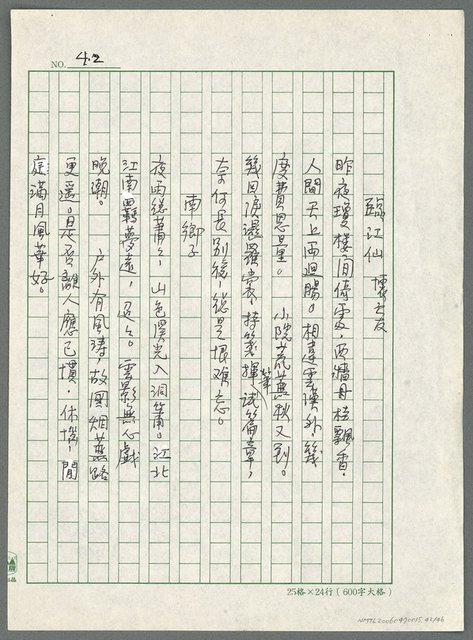 NO. 42
臨江仙 懷友
昨夜瓊樓閒倚處，西牆丹桂飄香，
人間天上兩迴腸。相違雲漢外，幾
度費思量。 小院荒蕪秋又到。
幾回淚濕羅裳，持箋揮筆試篇章，
奈何長別後，總是恨難忘。
南鄉子
夜雨總蕭蕭，山色溪光入洞簫。江北
江南羈夢遠，迢迢。雲影無心戲
晚潮。 戶外有風濤，故國烟蕪路
更遙。是否離人應已慣，休憐，閒
庭滿月風華好。
25格×24行（600字大格）
NMTL20060470015 42/46